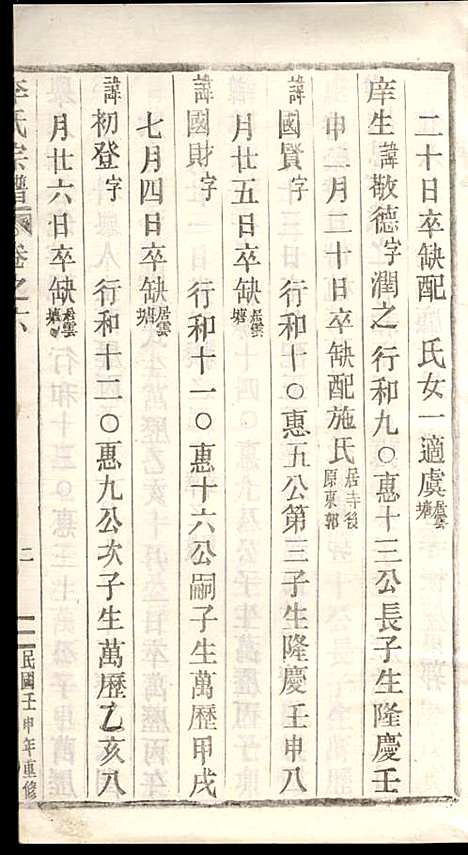 二十日卒缺配　氏女一適虞居雲塘
庠生諱敬德字潤之　行和九〇惠十三公長子生隆慶壬
申二月二十日卒缺配施氏居寺後原東郭
諱國賢字　　行和十〇惠五公第三子生隆慶壬申八
月廿五日卒缺居雲塘
諱國財字　　行和十一〇惠十六公嗣子生萬歷甲戌
七月四日卒缺居雲塘
諱初登字　　行和十二〇惠九公次子生萬歷乙亥八
月廿六日卒缺居雲塘
李氏宗譜　卷之六　二　民國壬申年重修